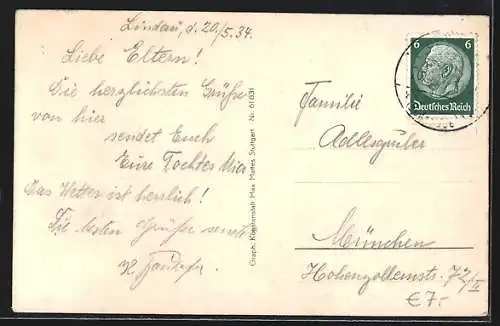 Lindau, d. 20./5.34.
Liebe Eltern!
Die herzlichsten Grüße
von hier
sendet Euch
Eure Tochter
Das Wetter ist herrlich!
Die besten Grüße sendet
Graph. Kunstanstalt Max Mattes Stuttgart Nr. 61631
6 6
Deutsches Reich
Familie
München
Hohenzollernstr. 72/II
€ 7.-